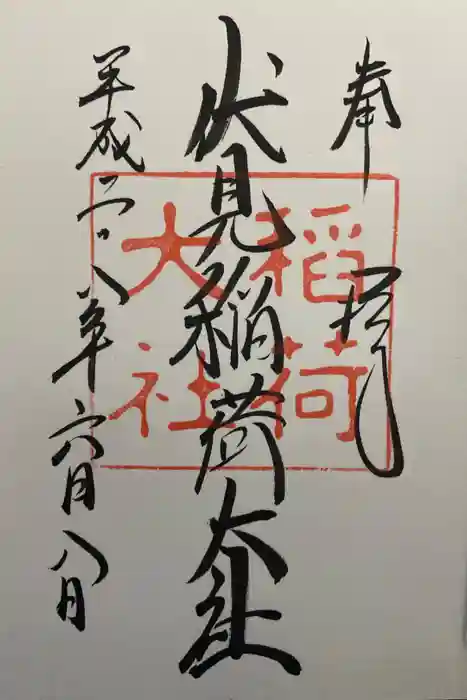 奉拝
伏見稲荷大社
稲荷大社
平成二八年六月八日